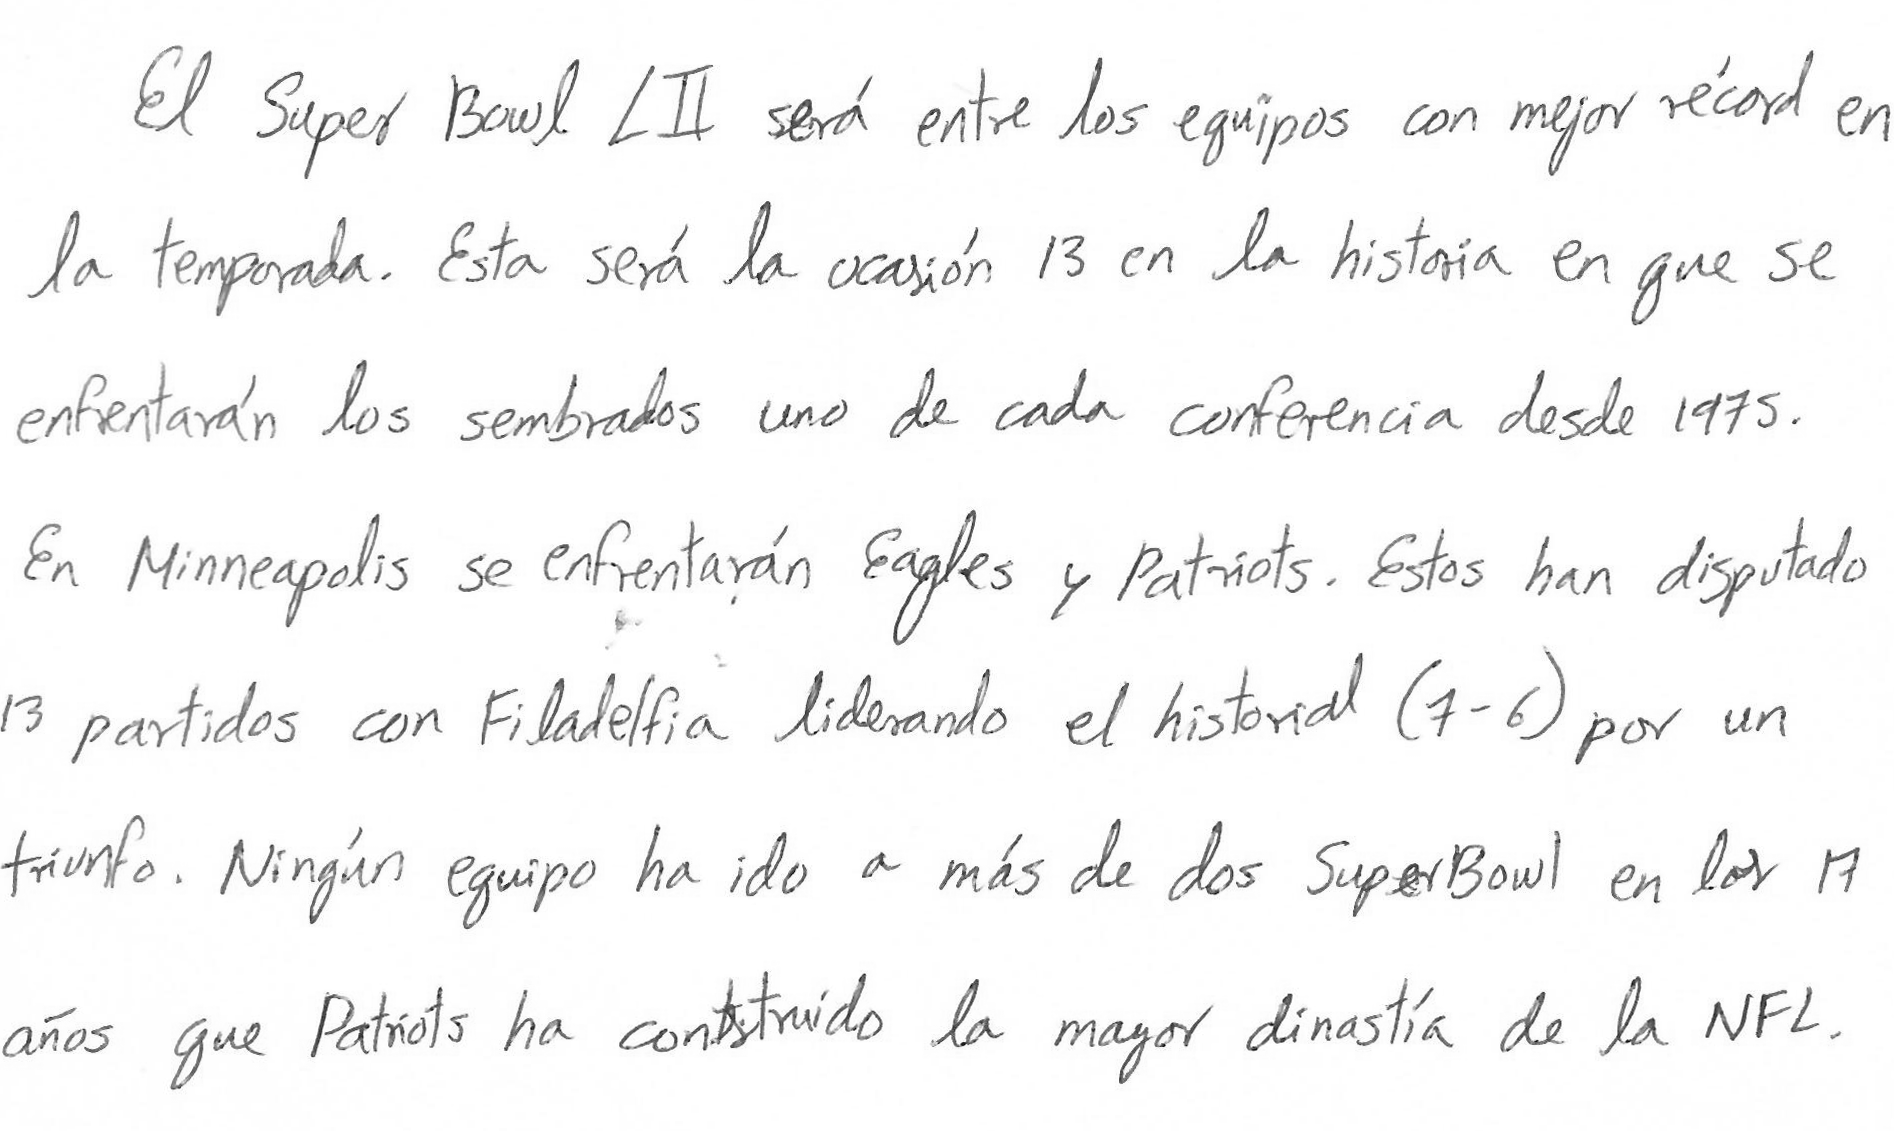 El Super Bowl LII será entre los equipos con mejor récord en
la temporada. Esta será la ocasión 13 en la historia en que se
enfrentarán los sembrados uno de cada conferencia desde 1975.
En Minneapolis se enfrentarán Eagles y Patriots. Estos han disputado
13 partidos con Filadelfia liderando el historial (7-6) por un
triunfo. Ningún equipo ha ido a más de dos SuperBowl en los 17
años que Patriots ha construido la mayor dinastía de la NFL.